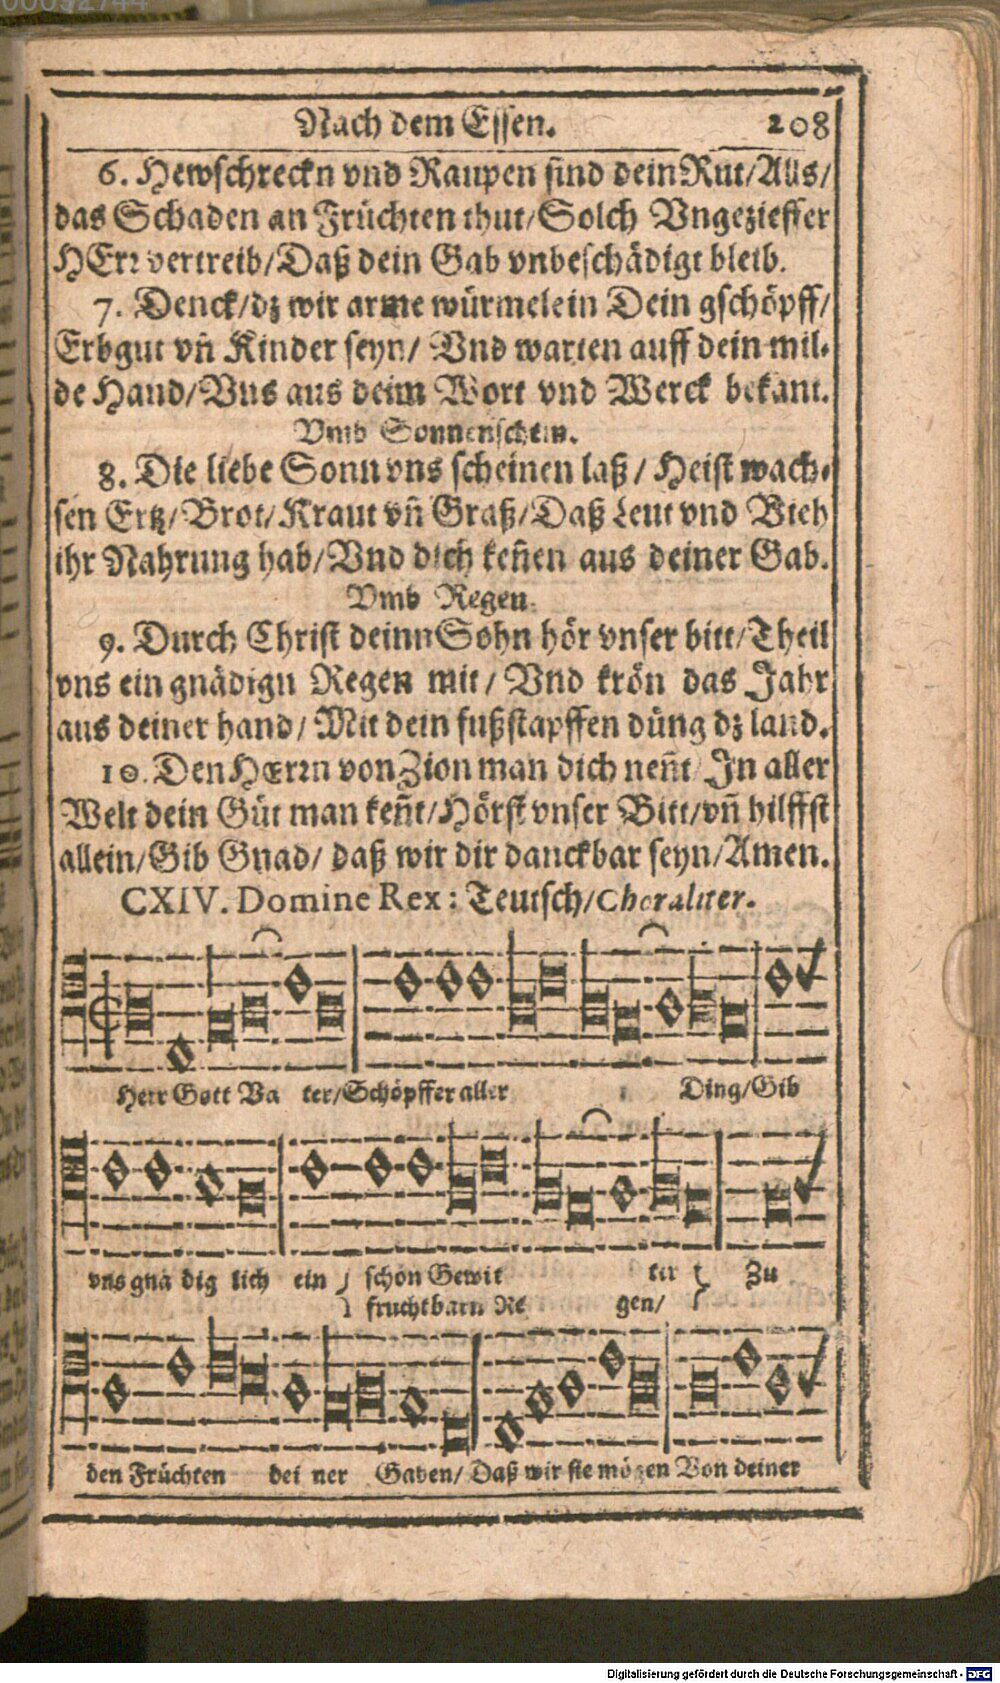 00092744
Nach dem Essen. 208
6. Hewschreckn vnd Raupen sind dein Rut/Alls/
das Schaden an Früchten thut/Solch Vngezieffer
HErr vertreib/Daß dein Gab vnbeschädigt bleib.
7. Denck/dz wir arme würmelein Dein gschöpff/
Erbgut vñ Kinder seyn/ Vnd warten auff dein mil-
de Hand/Vns aus deim Wort vnd Werck bekant.
Vmb Sonnenschein.
8. Die liebe Sonn vns scheinen laß/ Heist wach-
sen Ertz/Brot/Kraut vñ Graß/Daß Leut vnd Vieh
ihr Nahrung hab/Vnd dich keñen aus deiner Gab.
Vmb Regen.
9. Durch Christ deinn Sohn hör vnser bitt/Theil
vns ein gnädign Regen mit/ Vnd krön das Jahr
aus deiner hand/Mit dein fußstapffen düng dz land.
10. Den HErrn von Zion man dich neñt/ In aller
Welt dein Güt man keñt/Hörst vnser Bitt/vñ hilffst
allein/Gib Gnad/ daß wir dir danckbar seyn/Amen.
CXIV. Domine Rex: Teutsch/Choraliter.
Herr Gott Va ter/Schöpffer aller Ding/Gib
vns gnä dig lich ein schön Gewit ter Zu
fruchtbarn Re gen/
den Früchten dei ner Gaben/Daß wir sie mögen Von deiner
Digitalisierung gefördert durch die Deutsche Forschungsgemeinschaft - DFG